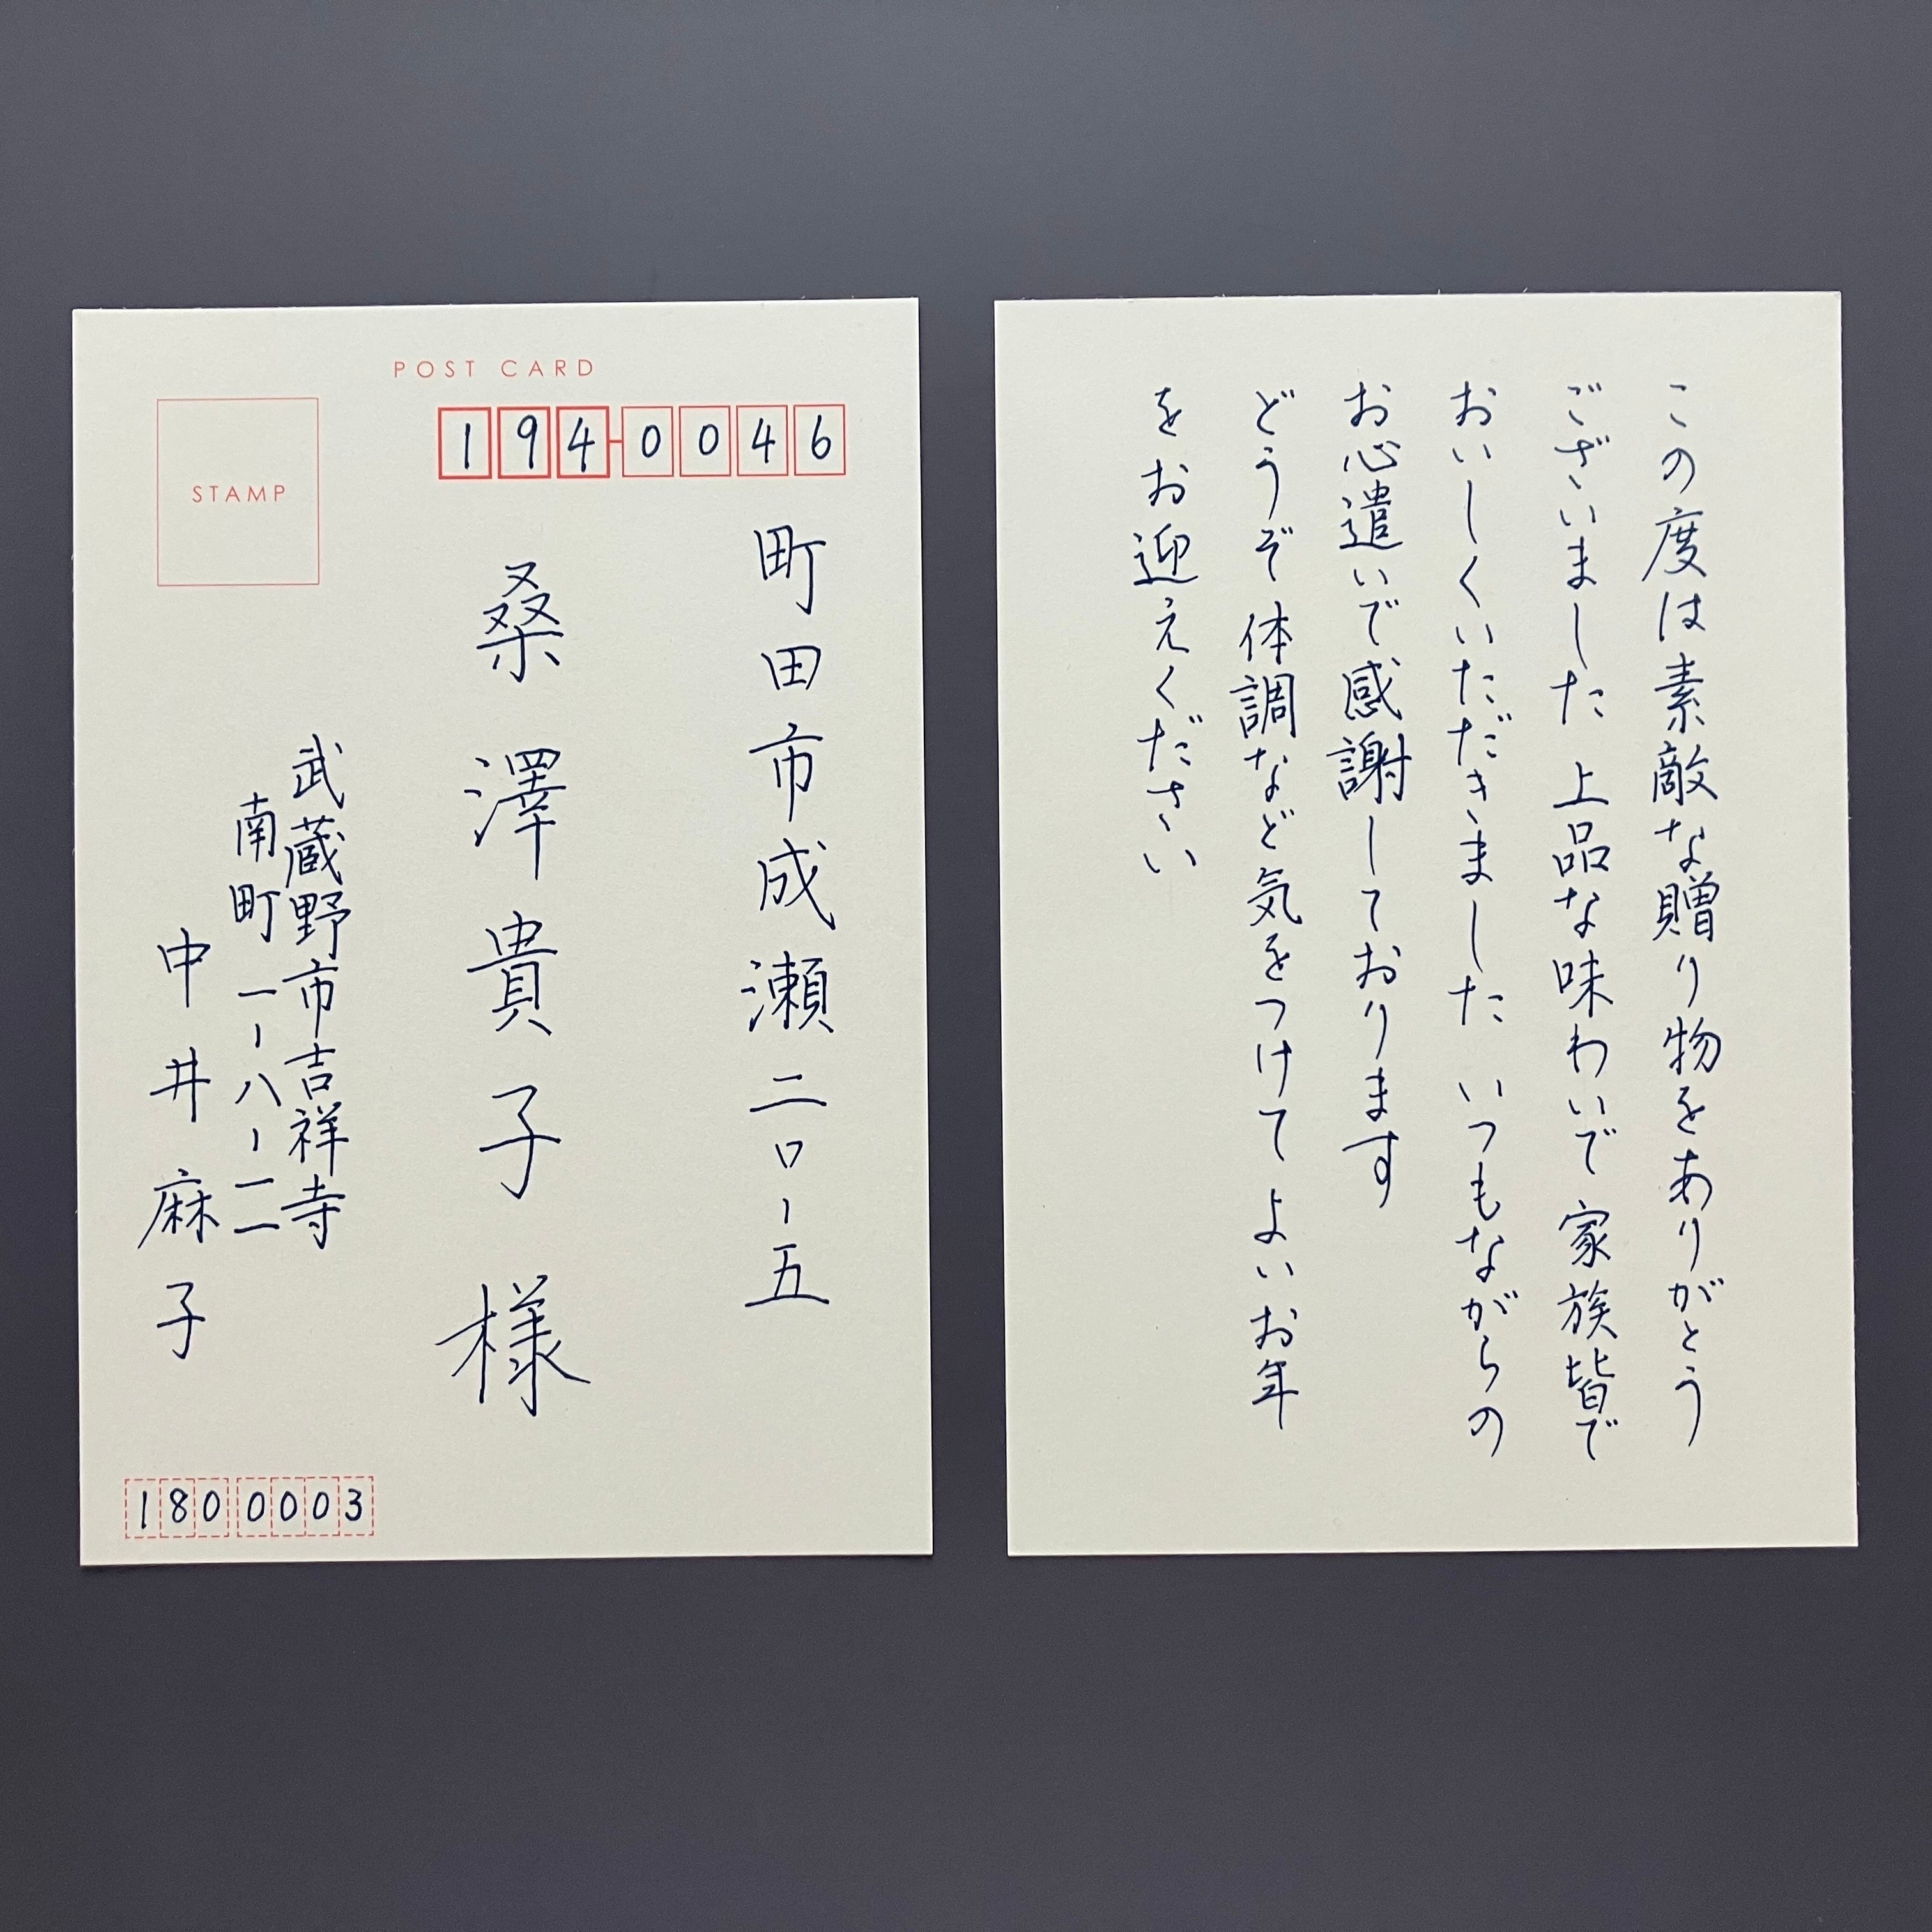 POST CARD
STAMP
194-0046
町田市成瀬二〇ー五
桑澤貴子様
武蔵野市吉祥寺
南町一ー八ー二一
中井麻子
1800003
この度は素敵な贈り物をありがとう
ございました 上品な味わいで家族皆で
おいしくいただきました いつもながらの
お心遣いで感謝しております
どうぞ体調など気をつけてよいお年
をお迎えください